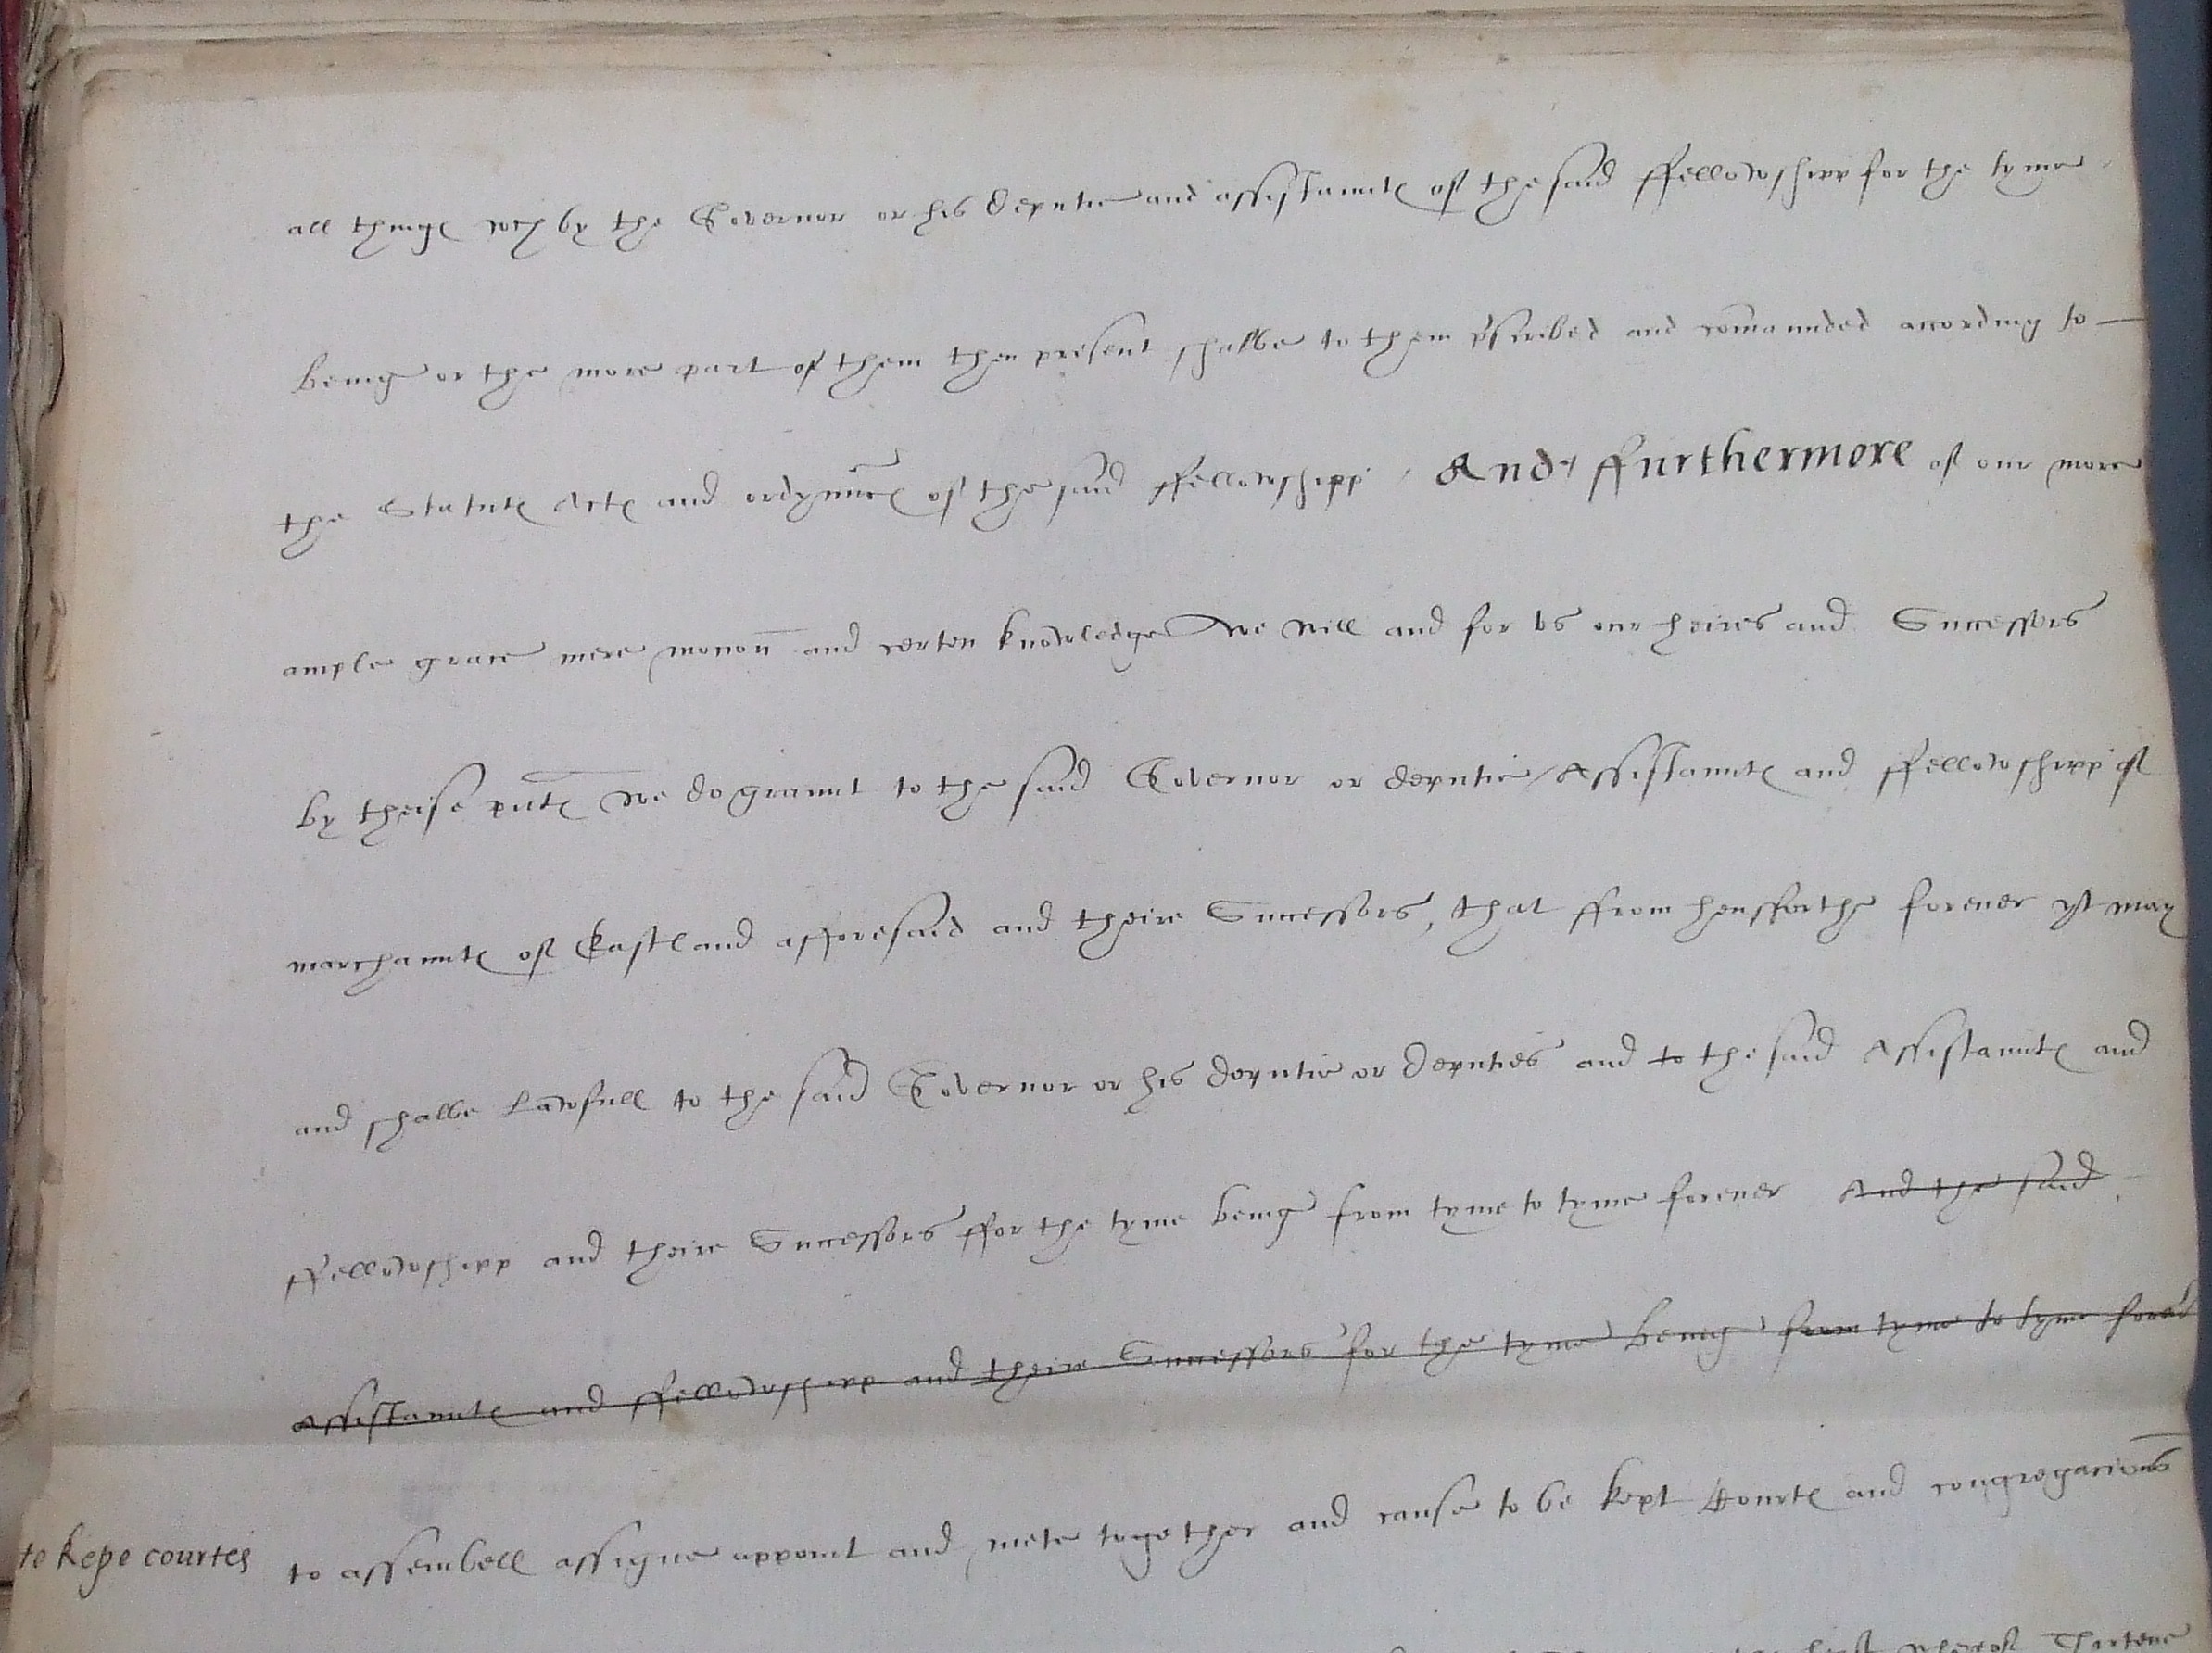 all thinges wch by the Governor or his deputie and assistauntes of the said ffellowshipp for the tyme
being or the more part of them then present shalbe to them p'scribed and com̄aunded according to —
the Statutes Actes and ordyn̄nces of the said ffellowshipp / And ffurthermore of our more
ample grace mere mocon̄ and certen knowledge We will and for vs our heires and Successors
by theise p̄ntes we do graunt to the said Governor or deputie / Assistauntes and ffellowshipp of
marchauntes of Eastland afforesaid and theire Successors, that ffrom hensforthe foreuer yt may
and shalbe Lawfull to the said Governor or his deputie or deputies and to the said Assistauntes and
ffellowshipp and theire Successors ffor the tyme being from tyme to tyme foreuer And the said
Assistauntes and ffellowshipp and theire Successors for the tyme being from tyme to tyme
to kepe courtes
to assembell assigne appoint and mete together and cause to be kept Courtes and congregacion̄s
whereof Thirtene